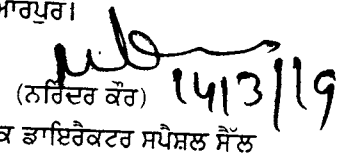 ਆਰਪੁਰ।
(ਨਰਿੰਦਰ ਕੌਰ) 14/3/19
ਕ ਡਾਇਰੈਕਟਰ ਸਪੈਸ਼ਲ ਸੈੱਲ